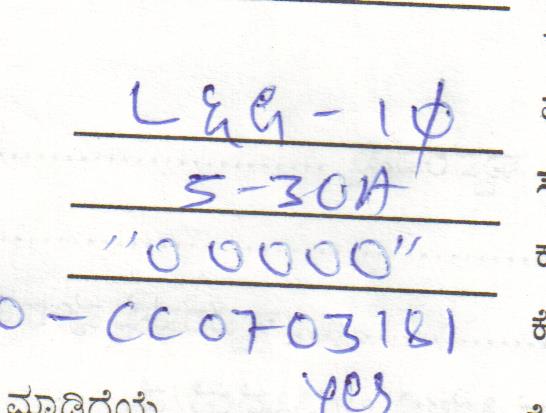 L&G - 1ϕ
5-30A
"00000"
0 - CC0703181
yes
ಮಾಡಿಗೆಯೇ